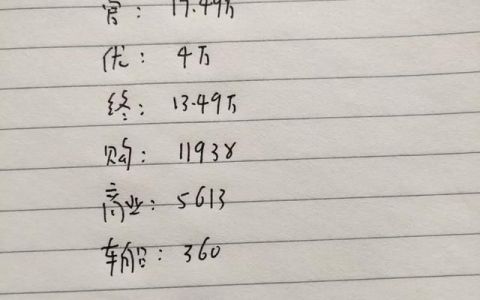 官: 17.49万
优: 4万
终: 13.49万
购: 11938
商业: 5613
车船: 360